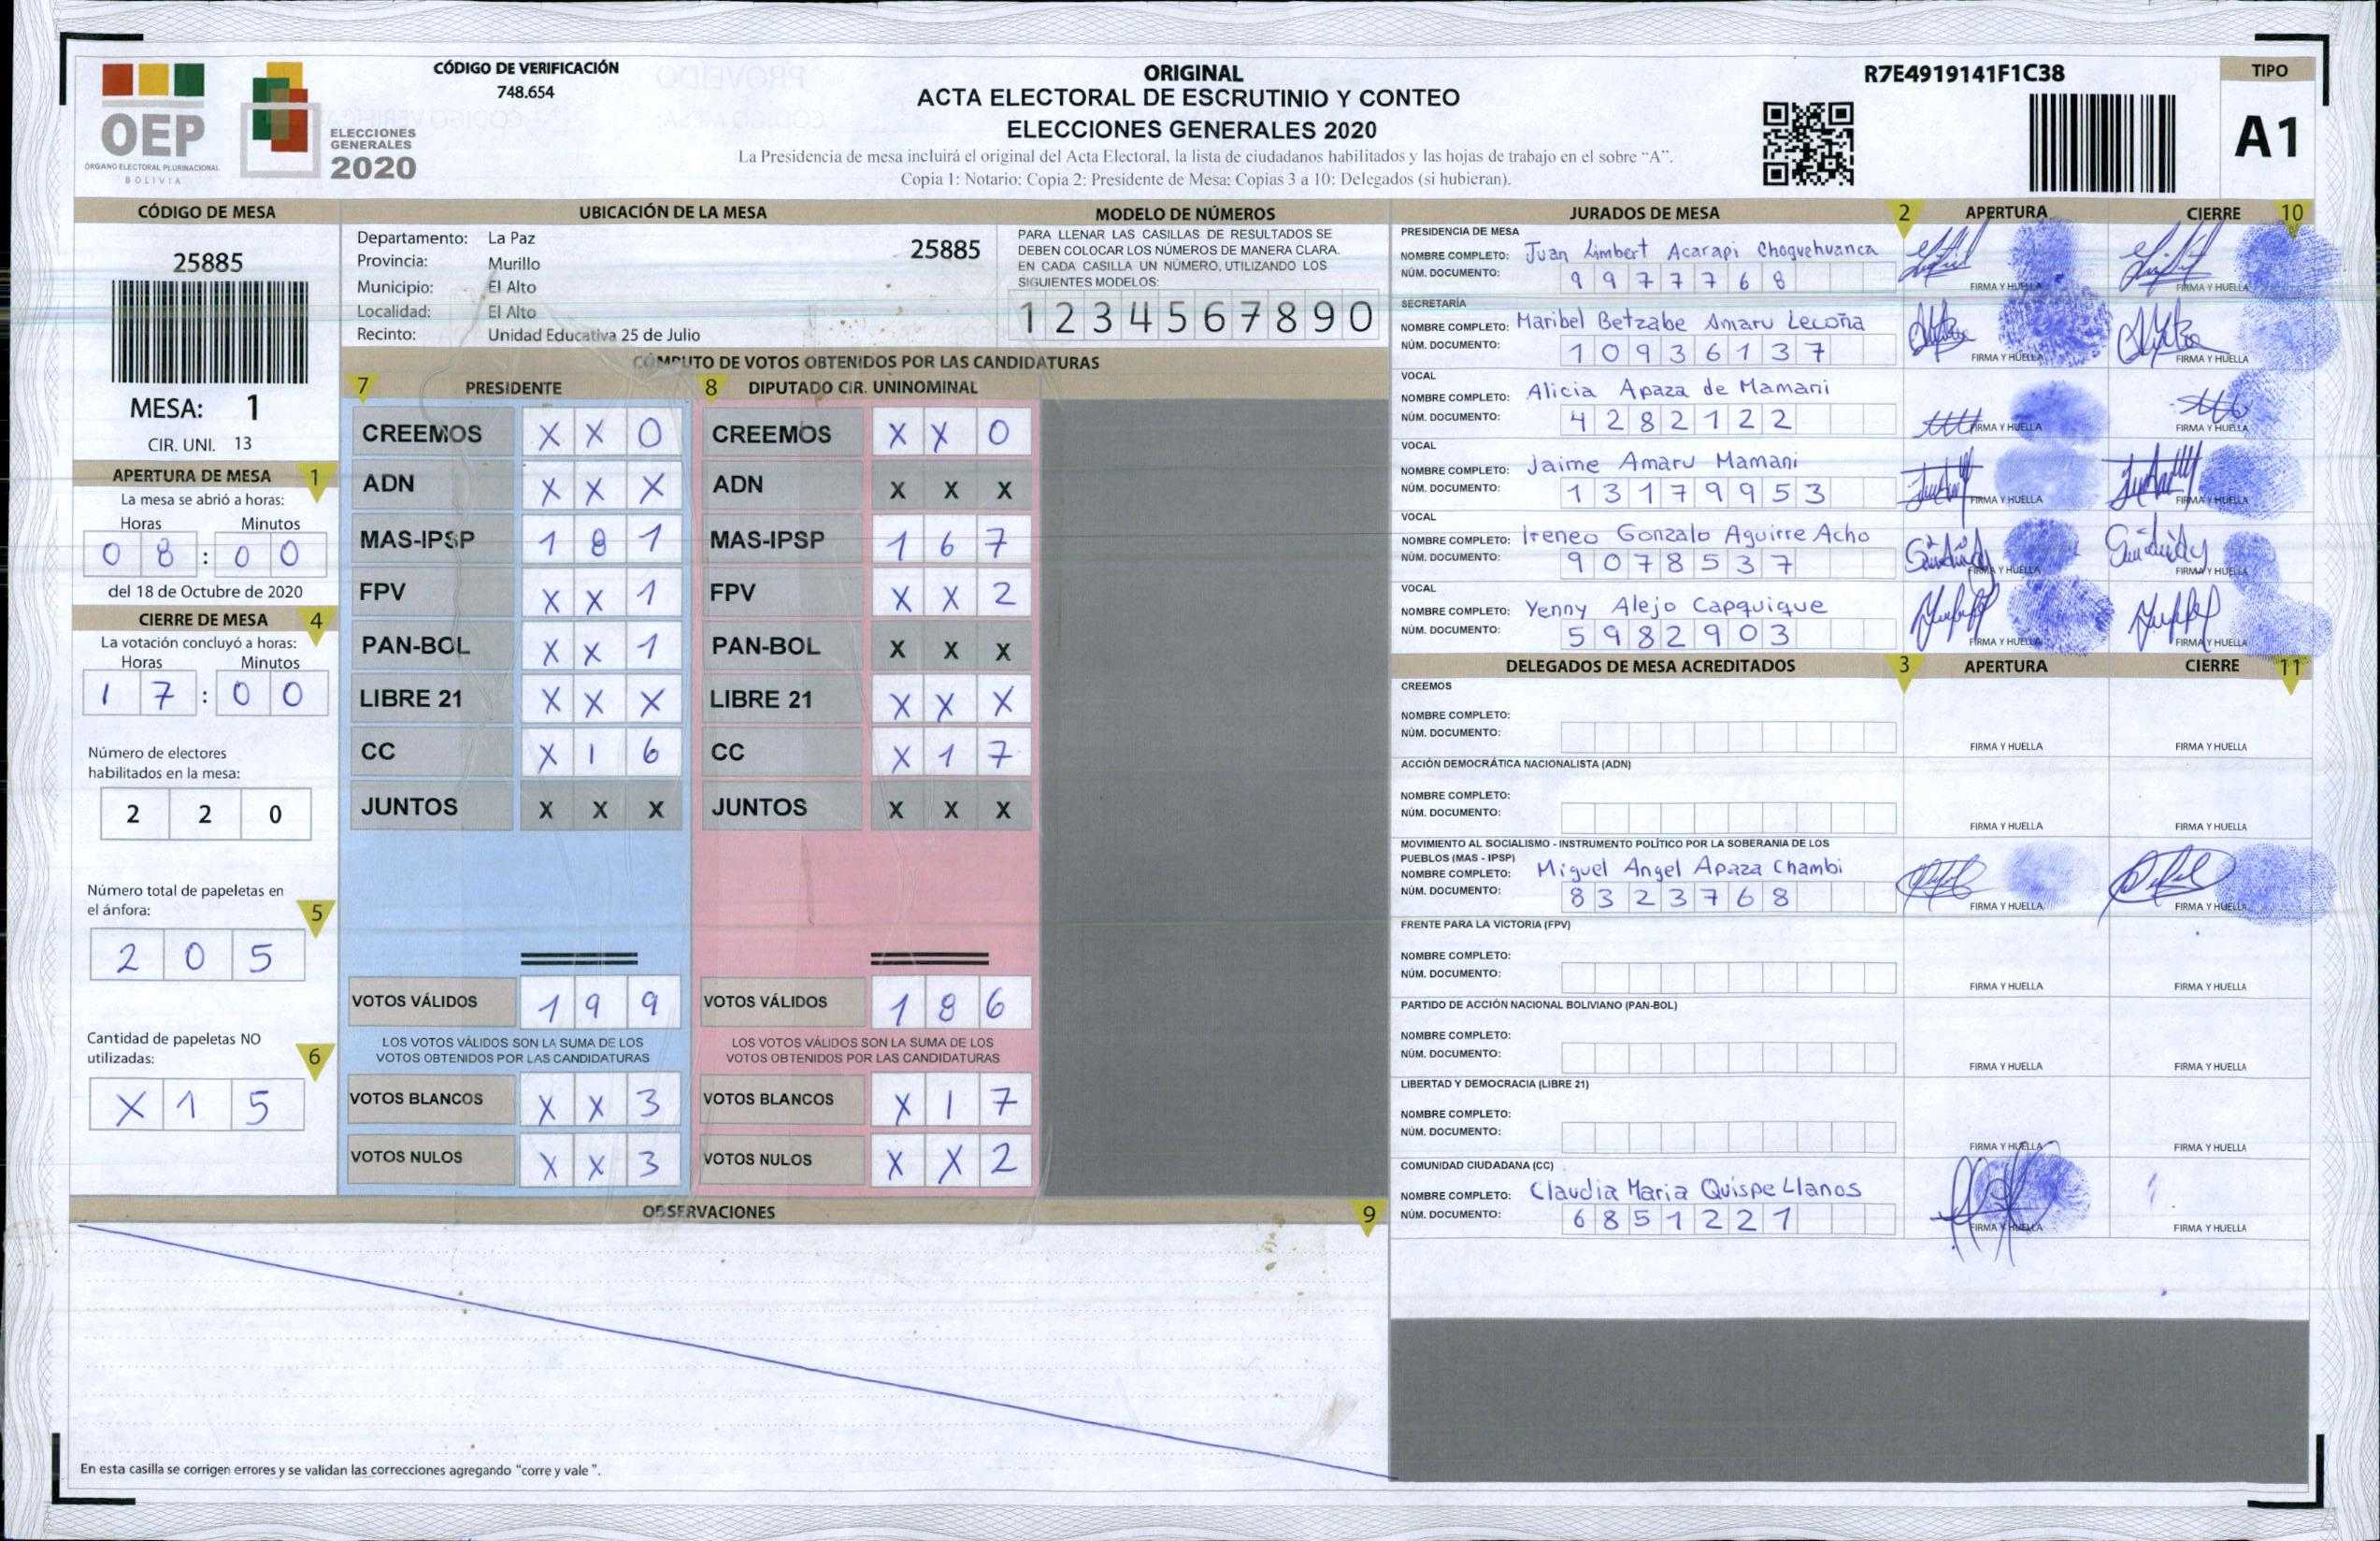 OEP
ÓRGANO ELECTORAL PLURINACIONAL
BOLIVIA
ELECCIONES
GENERALES
2020
CÓDIGO DE VERIFICACIÓN
748.654
ORIGINAL
ACTA ELECTORAL DE ESCRUTINIO Y CONTEO
ELECCIONES GENERALES 2020
La Presidencia de mesa incluirá el original del Acta Electoral, la lista de ciudadanos habilitados y las hojas de trabajo en el sobre "A".
Copia 1: Notario; Copia 2: Presidente de Mesa; Copias 3 a 10: Delegados (si hubieran).
R7E4919141F1C38
TIPO
A1
CÓDIGO DE MESA
25885
MESA: 1
CIR. UNI. 13
APERTURA DE MESA 1
La mesa se abrió a horas:
Horas Minutos
0 8 : 0 0
del 18 de Octubre de 2020
CIERRE DE MESA 4
La votación concluyó a horas:
Horas Minutos
1 7 : 0 0
Número de electores
habilitados en la mesa:
2 2 0
Número total de papeletas en
el ánfora: 5
2 0 5
Cantidad de papeletas NO
utilizadas: 6
X 1 5
UBICACIÓN DE LA MESA
Departamento: La Paz
25885
Provincia: Murillo
Municipio: El Alto
Localidad: El Alto
Recinto: Unidad Educativa 25 de Julio
MODELO DE NÚMEROS
PARA LLENAR LAS CASILLAS DE RESULTADOS SE
DEBEN COLOCAR LOS NÚMEROS DE MANERA CLARA.
EN CADA CASILLA UN NÚMERO, UTILIZANDO LOS
SIGUIENTES MODELOS:
1 2 3 4 5 6 7 8 9 0
CÓMPUTO DE VOTOS OBTENIDOS POR LAS CANDIDATURAS
7 PRESIDENTE 8 DIPUTADO CIR. UNINOMINAL
CREEMOS X X 0 CREEMOS X X 0
ADN X X X ADN X X X
MAS-IPSP 1 8 1 MAS-IPSP 1 6 7
FPV X X 1 FPV X X 2
PAN-BOL X X 1 PAN-BOL X X X
LIBRE 21 X X X LIBRE 21 X X X
CC X 1 6 CC X 1 7
JUNTOS X X X JUNTOS X X X
VOTOS VÁLIDOS 1 9 9 VOTOS VÁLIDOS 1 8 6
LOS VOTOS VÁLIDOS SON LA SUMA DE LOS LOS VOTOS VÁLIDOS SON LA SUMA DE LOS
VOTOS OBTENIDOS POR LAS CANDIDATURAS VOTOS OBTENIDOS POR LAS CANDIDATURAS
VOTOS BLANCOS X X 3 VOTOS BLANCOS X 1 7
VOTOS NULOS X X 3 VOTOS NULOS X X 2
OBSERVACIONES 9
En esta casilla se corrigen errores y se validan las correcciones agregando "corre y vale ".
JURADOS DE MESA 2 APERTURA CIERRE 10
PRESIDENCIA DE MESA
NOMBRE COMPLETO: Juan Limbert Acarapi Choquehuanca
NÚM. DOCUMENTO: 9 9 7 7 7 6 8
FIRMA Y HUELLA FIRMA Y HUELLA
SECRETARÍA
NOMBRE COMPLETO: Maribel Betzabe Amaru Lecoña
NÚM. DOCUMENTO: 1 0 9 3 6 1 3 7
FIRMA Y HUELLA FIRMA Y HUELLA
VOCAL
NOMBRE COMPLETO: Alicia Apaza de Mamani
NÚM. DOCUMENTO: 4 2 8 2 1 2 2
FIRMA Y HUELLA FIRMA Y HUELLA
VOCAL
NOMBRE COMPLETO: Jaime Amaru Mamani
NÚM. DOCUMENTO: 1 3 1 7 9 9 5 3
FIRMA Y HUELLA FIRMA Y HUELLA
VOCAL
NOMBRE COMPLETO: Ireneo Gonzalo Aguirre Acho
NÚM. DOCUMENTO: 9 0 7 8 5 3 7
FIRMA Y HUELLA FIRMA Y HUELLA
VOCAL
NOMBRE COMPLETO: Yenny Alejo Capquique
NÚM. DOCUMENTO: 5 9 8 2 9 0 3
FIRMA Y HUELLA FIRMA Y HUELLA
DELEGADOS DE MESA ACREDITADOS 3 APERTURA CIERRE 11
CREEMOS
NOMBRE COMPLETO:
NÚM. DOCUMENTO:
FIRMA Y HUELLA FIRMA Y HUELLA
ACCIÓN DEMOCRÁTICA NACIONALISTA (ADN)
NOMBRE COMPLETO:
NÚM. DOCUMENTO:
FIRMA Y HUELLA FIRMA Y HUELLA
MOVIMIENTO AL SOCIALISMO - INSTRUMENTO POLÍTICO POR LA SOBERANIA DE LOS
PUEBLOS (MAS - IPSP)
NOMBRE COMPLETO: Miguel Angel Apaza Chambi
NÚM. DOCUMENTO: 8 3 2 3 7 6 8
FIRMA Y HUELLA FIRMA Y HUELLA
FRENTE PARA LA VICTORIA (FPV)
NOMBRE COMPLETO:
NÚM. DOCUMENTO:
FIRMA Y HUELLA FIRMA Y HUELLA
PARTIDO DE ACCIÓN NACIONAL BOLIVIANO (PAN-BOL)
NOMBRE COMPLETO:
NÚM. DOCUMENTO:
FIRMA Y HUELLA FIRMA Y HUELLA
LIBERTAD Y DEMOCRACIA (LIBRE 21)
NOMBRE COMPLETO:
NÚM. DOCUMENTO:
FIRMA Y HUELLA FIRMA Y HUELLA
COMUNIDAD CIUDADANA (CC)
NOMBRE COMPLETO: Claudia Maria Quispe Llanos
NÚM. DOCUMENTO: 6 8 5 1 2 2 1
FIRMA Y HUELLA FIRMA Y HUELLA